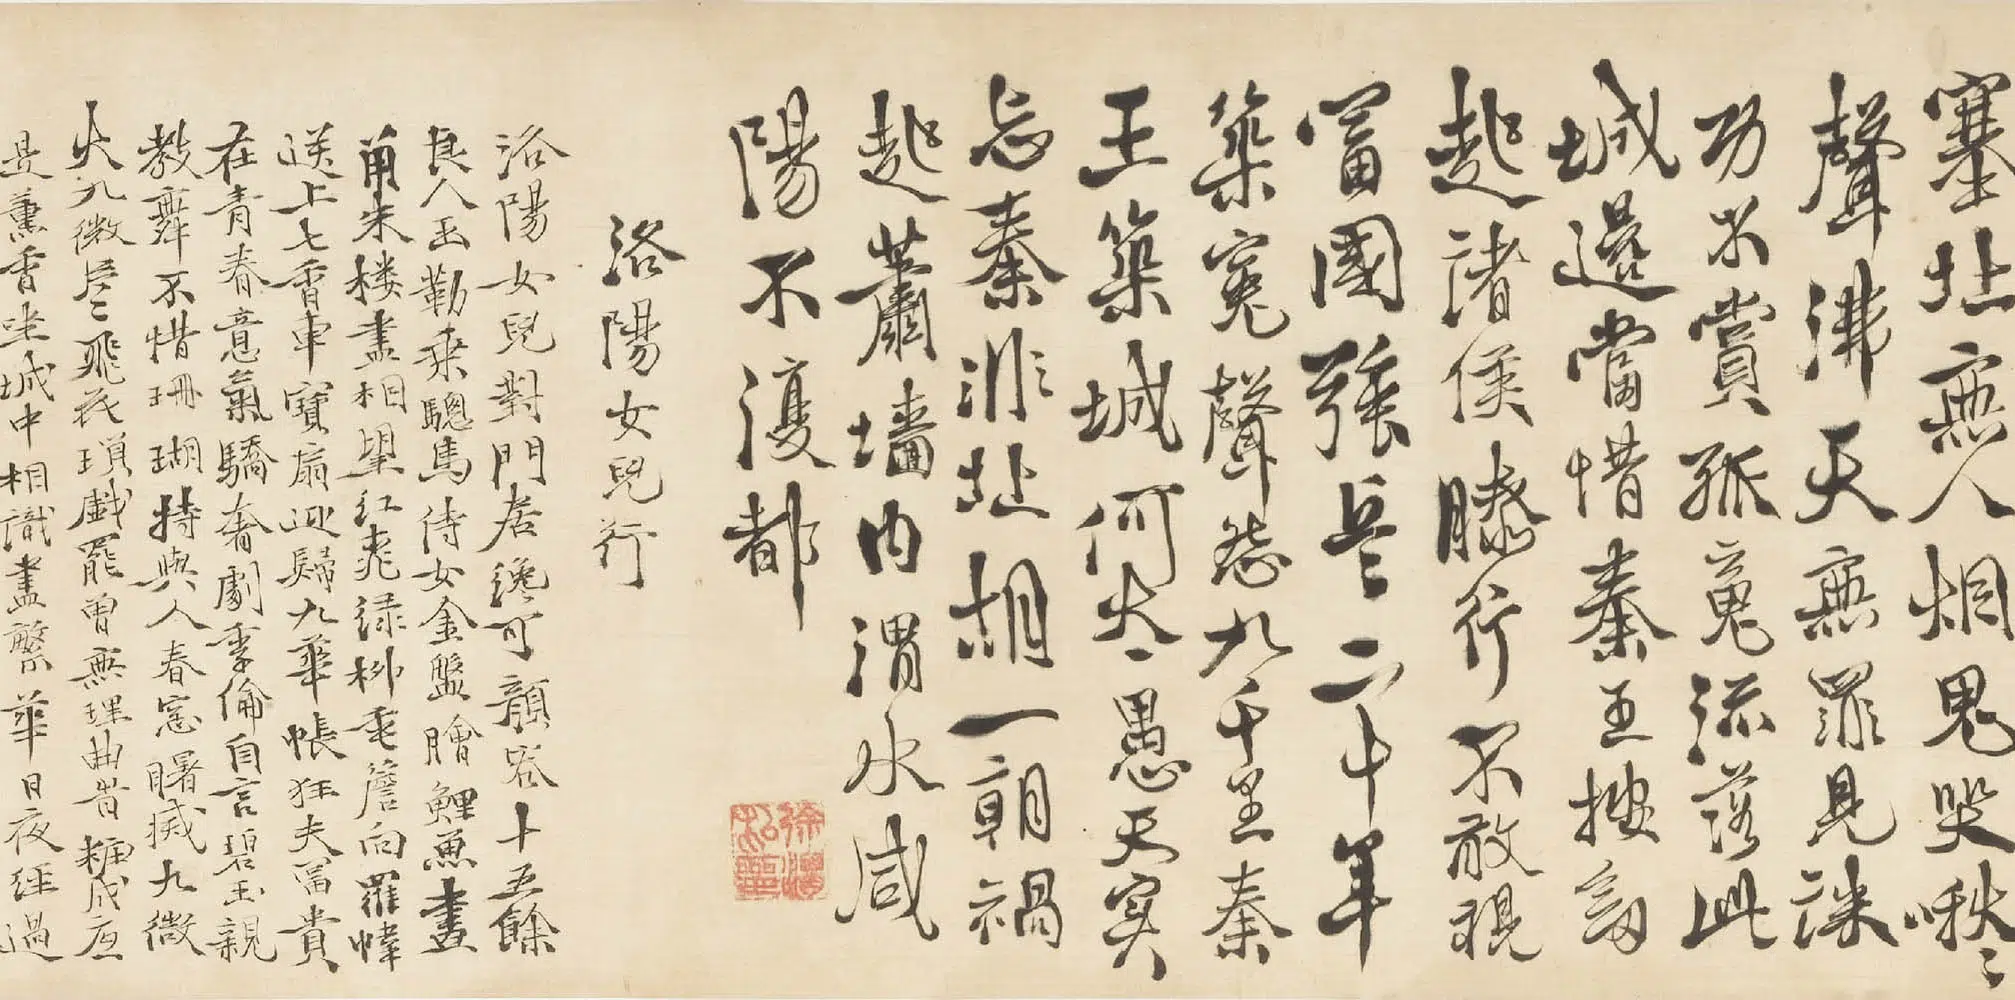 塞北無人烟鬼哭啾〻
聲沸天無罪見誅
功不賞孤魂流落此
城邊當惜秦王按劍
起諸侯膝行不敢視
富國強兵二十年
築冤聲怨九千里秦
王築城何太〻愚天實
忘秦非北胡一朝禍
起蕭墻内渭水咸
陽不復都
洛陽女兒行
洛陽女兒對門居纔可顏容十五餘
良人玉勒乘驄馬侍女金盤膾鯉魚畫
閣朱樓盡相望紅桃緑柳垂簷向羅幃
送上七香車寶扇迎歸九華帳狂夫富貴
在青春意氣驕奢劇季倫自言碧玉親
教舞不惜珊瑚持與人春窓曙滅九微
火九微片〻飛花瑣戲罷曾無理曲昔粧成應
是薰香坐城中相識盡繁華日夜經過